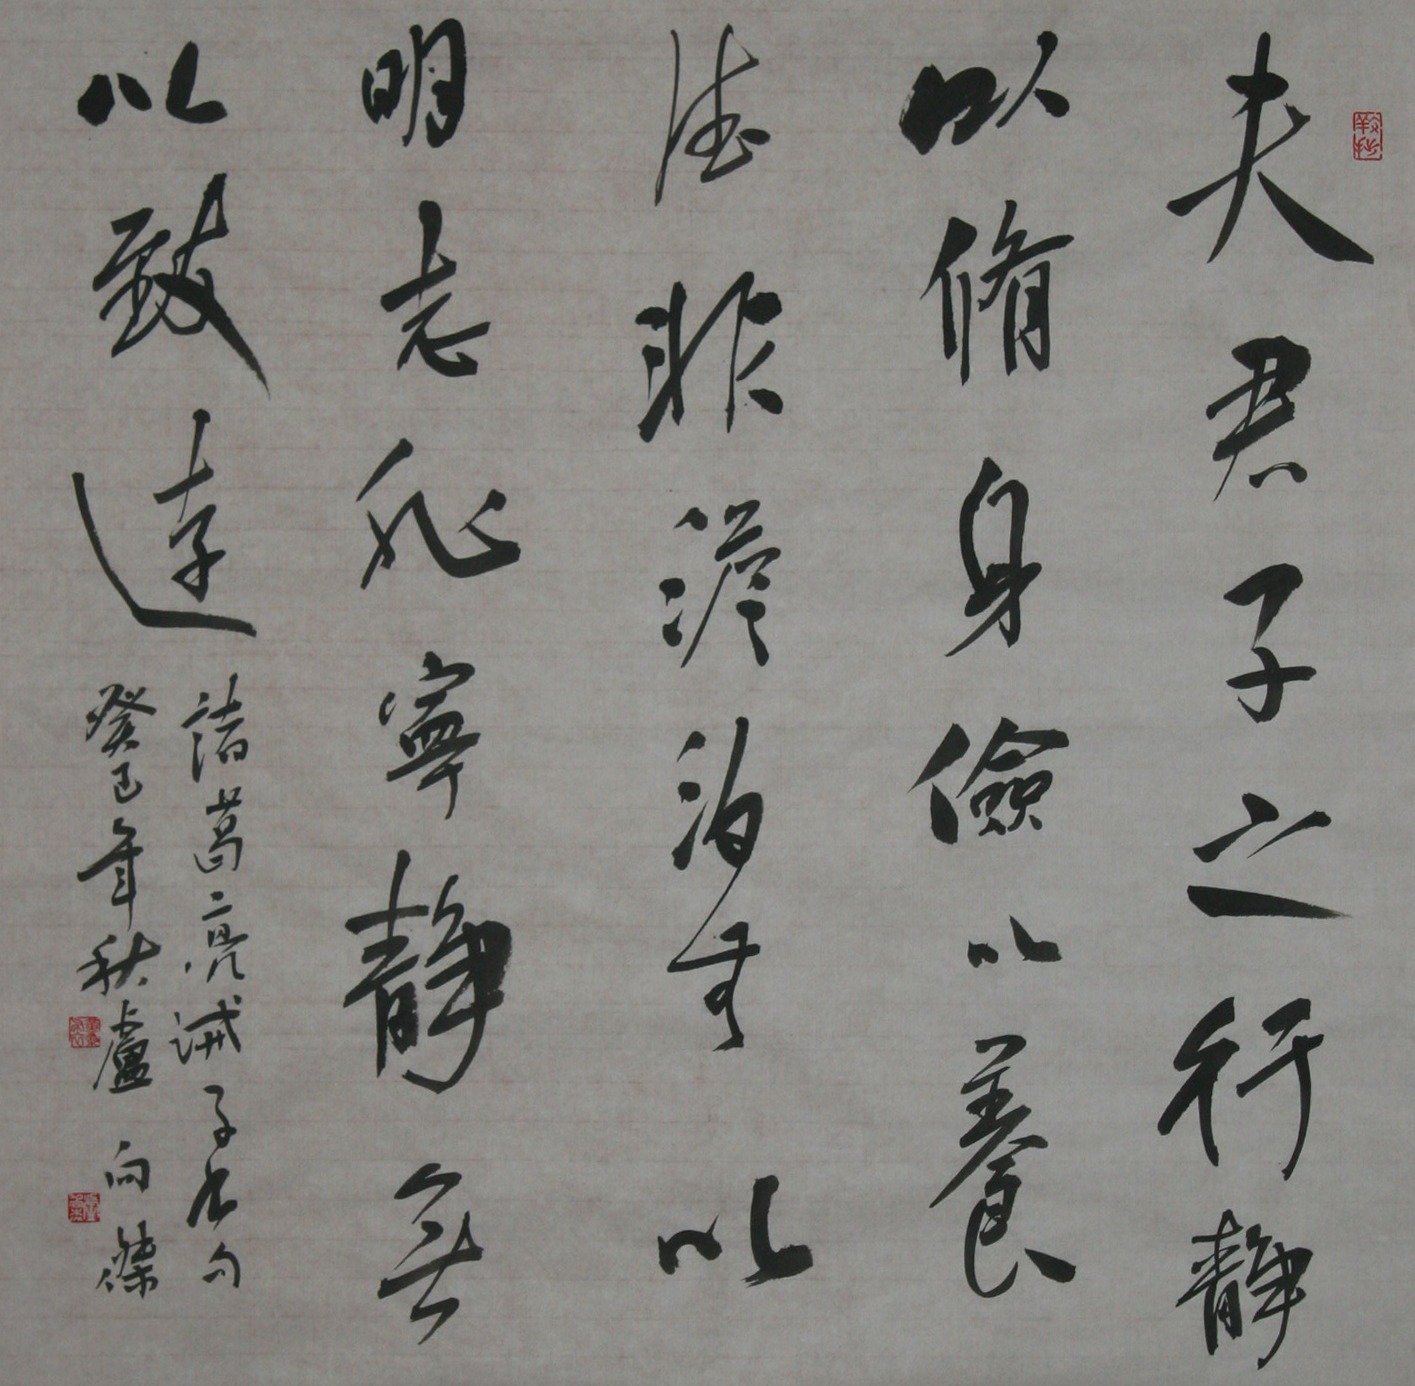 夫君子之行靜
以脩身儉以養
德非澹泊無以
明志非寧靜無
以致遠
諸葛亮誡子書句
癸巳年秋盧向傑